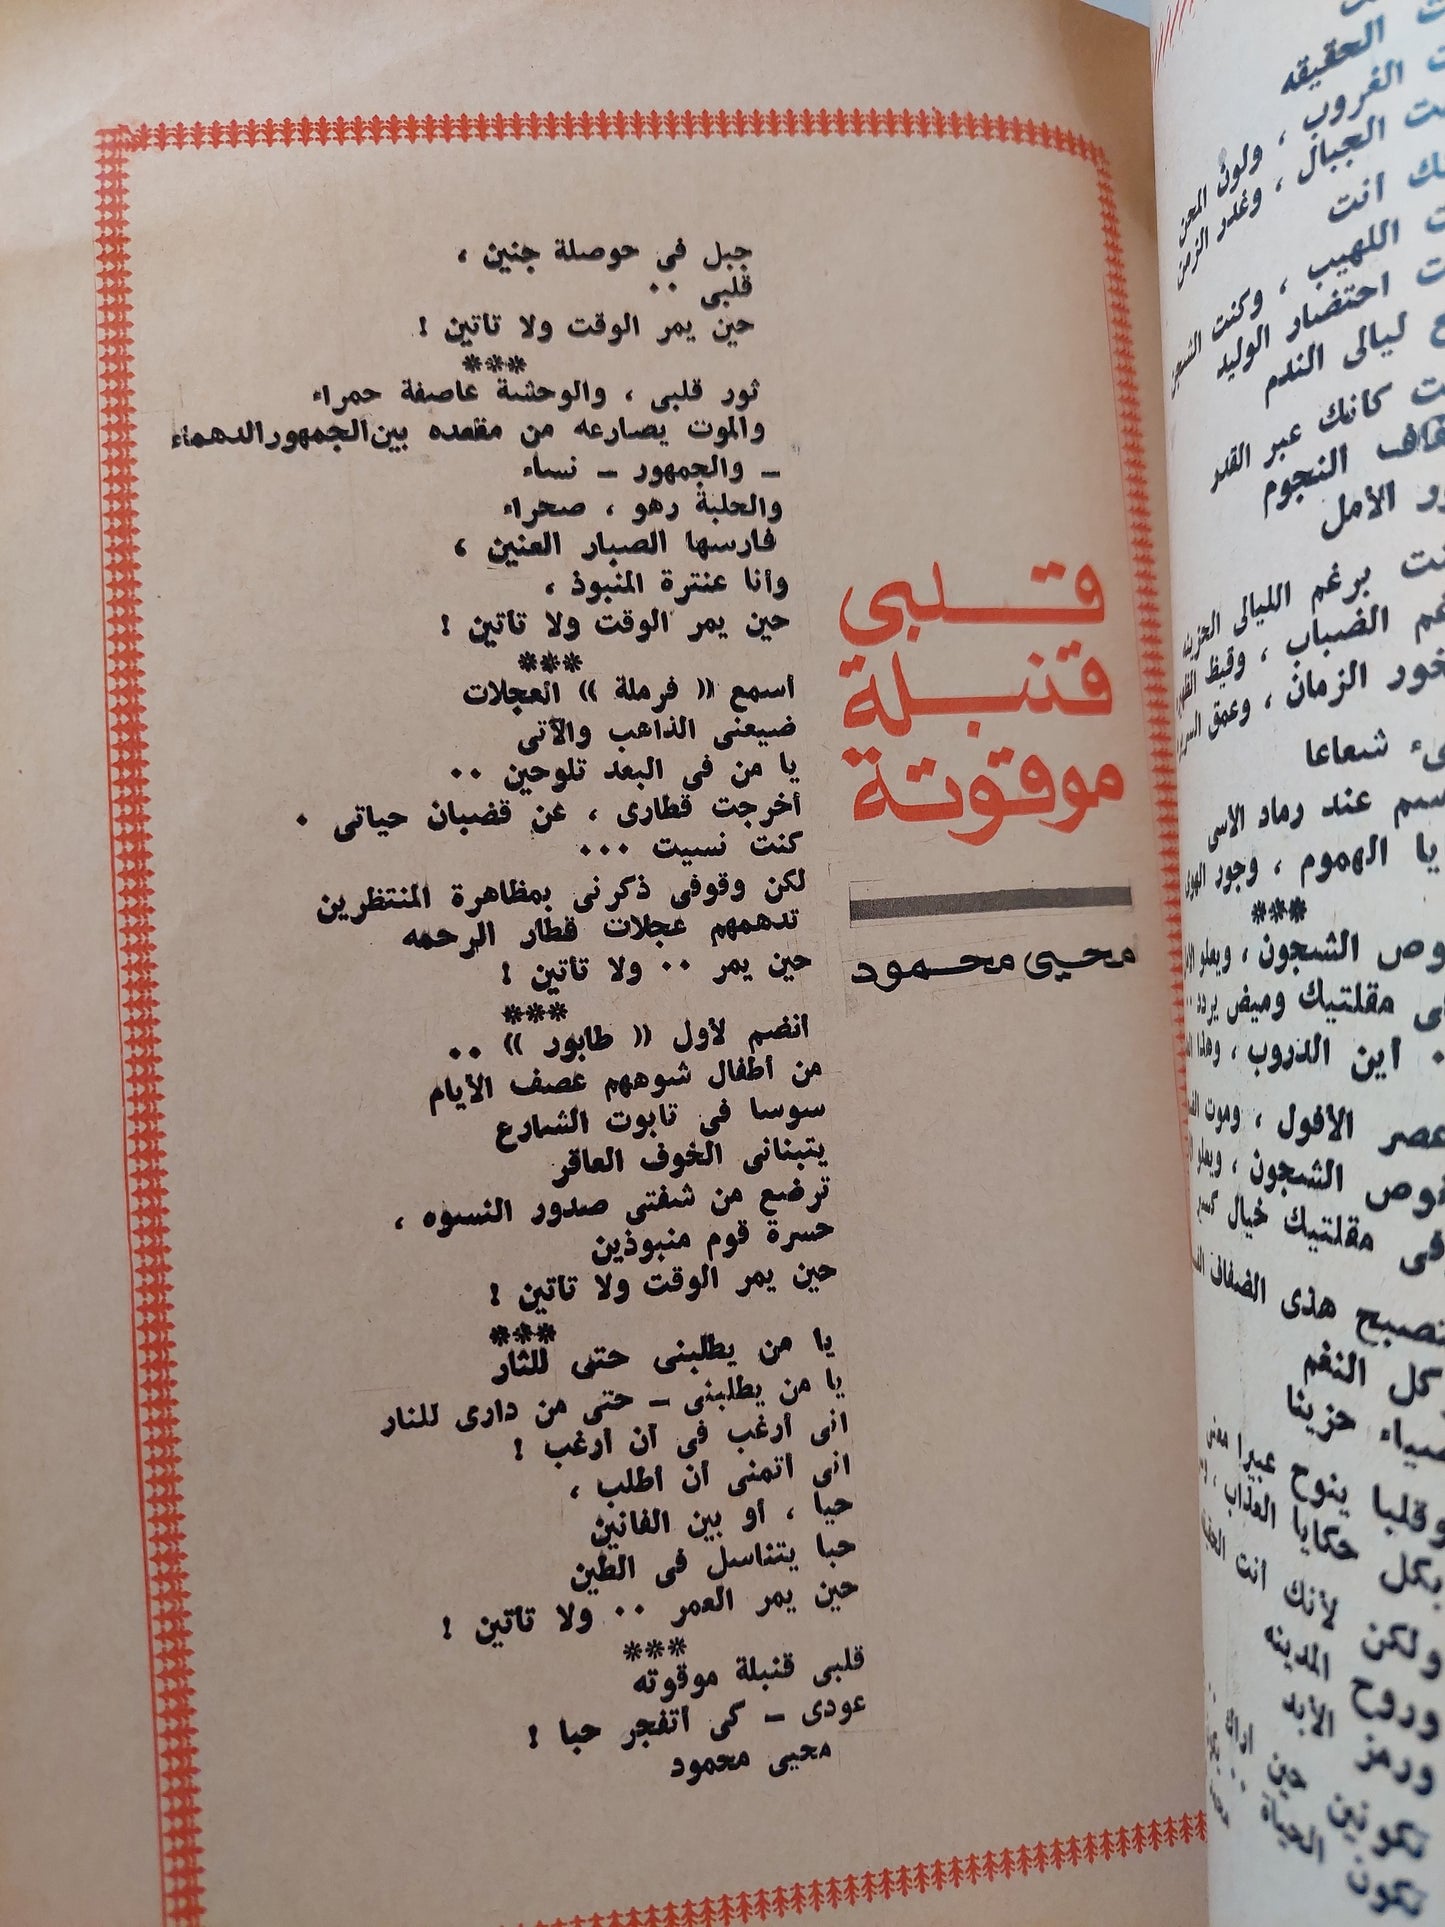 قلبى
قنبلة
موقوتة
محيى محمود
جبل فى حوصلة جنين ،
قلبى ٠٠
حين يمر الوقت ولا تأتين !
***
ثور قلبى ، والوحشة عاصفة حمراء
والموت يصارعه من مقعده بين الجمهور الدهماء
ـ والجمهور ـ نساء
والحلبة رهو ، صحراء
فارسها الصبار العنين ،
وأنا عنترة المنبوذ ،
حين يمر الوقت ولا تأتين !
***
أسمع (( فرملة )) العجلات
ضيعنى الذاهب والآتى
يا من فى البعد تلوحين ٠٠
أخرجت قطارى ، عن قضبان حياتى ٠
كنت نسيت ٠٠٠
لكن وقوفى ذكرنى بمظاهرة المنتظرين
تدهمهم عجلات قطار الرحمه
حين يمر ٠٠ ولا تأتين !
***
أنضم لأول (( طابور )) ٠٠
من أطفال شوههم عصف الأيام
سوسا فى تابوت الشارع
يتبنانى الخوف العاقر
ترضع من شفتى صدور النسوه ،
حسرة قوم منبوذين
حين يمر الوقت ولا تأتين !
***
يا من يطلبنى حتى للثار
يا من يطلبنى ـ حتى من دارى للنار
انى أرغب فى أن أرغب !
انى أتمنى أن أطلب ،
حيا ، أو بين الفانين
حبا يتناسل فى الطين
حين يمر العمر ٠٠ ولا تأتين !
***
قلبى قنبلة موقوته
عودى ـ كى أتفجر حبا !
محيى محمود
الحقيقه
الغروب ، ولون المحن
الجبال ، وغدر الزمن
انت
اللهيب ، وكنت الشجن
احتضار الوليد
ليالى الندم
كانك عبر القدر
النجوم
الأمل
برغم الليالى الحزينه
الضباب ، وقيظ
الزمان ، وعمق
شعاعا
عند رماد الاسى
يا الهموم ، وجور الهوى
***
الشجون ، ويعلو
مقلتيك وميض يردد ٠٠
أين الدروب ، وهذا
الأفول ، وموت
الشجون ، ويعلو
فى مقلتيك خيال
تصبح هذى الضفاف
كل النغم
حزينا
وقلبا ينوح عبيرا
بكل حكايا العذاب ،
ولكن لأنك أنت
وروح المدينه
ورمز الأبد
تكونين حين أراك
تكون الحياة